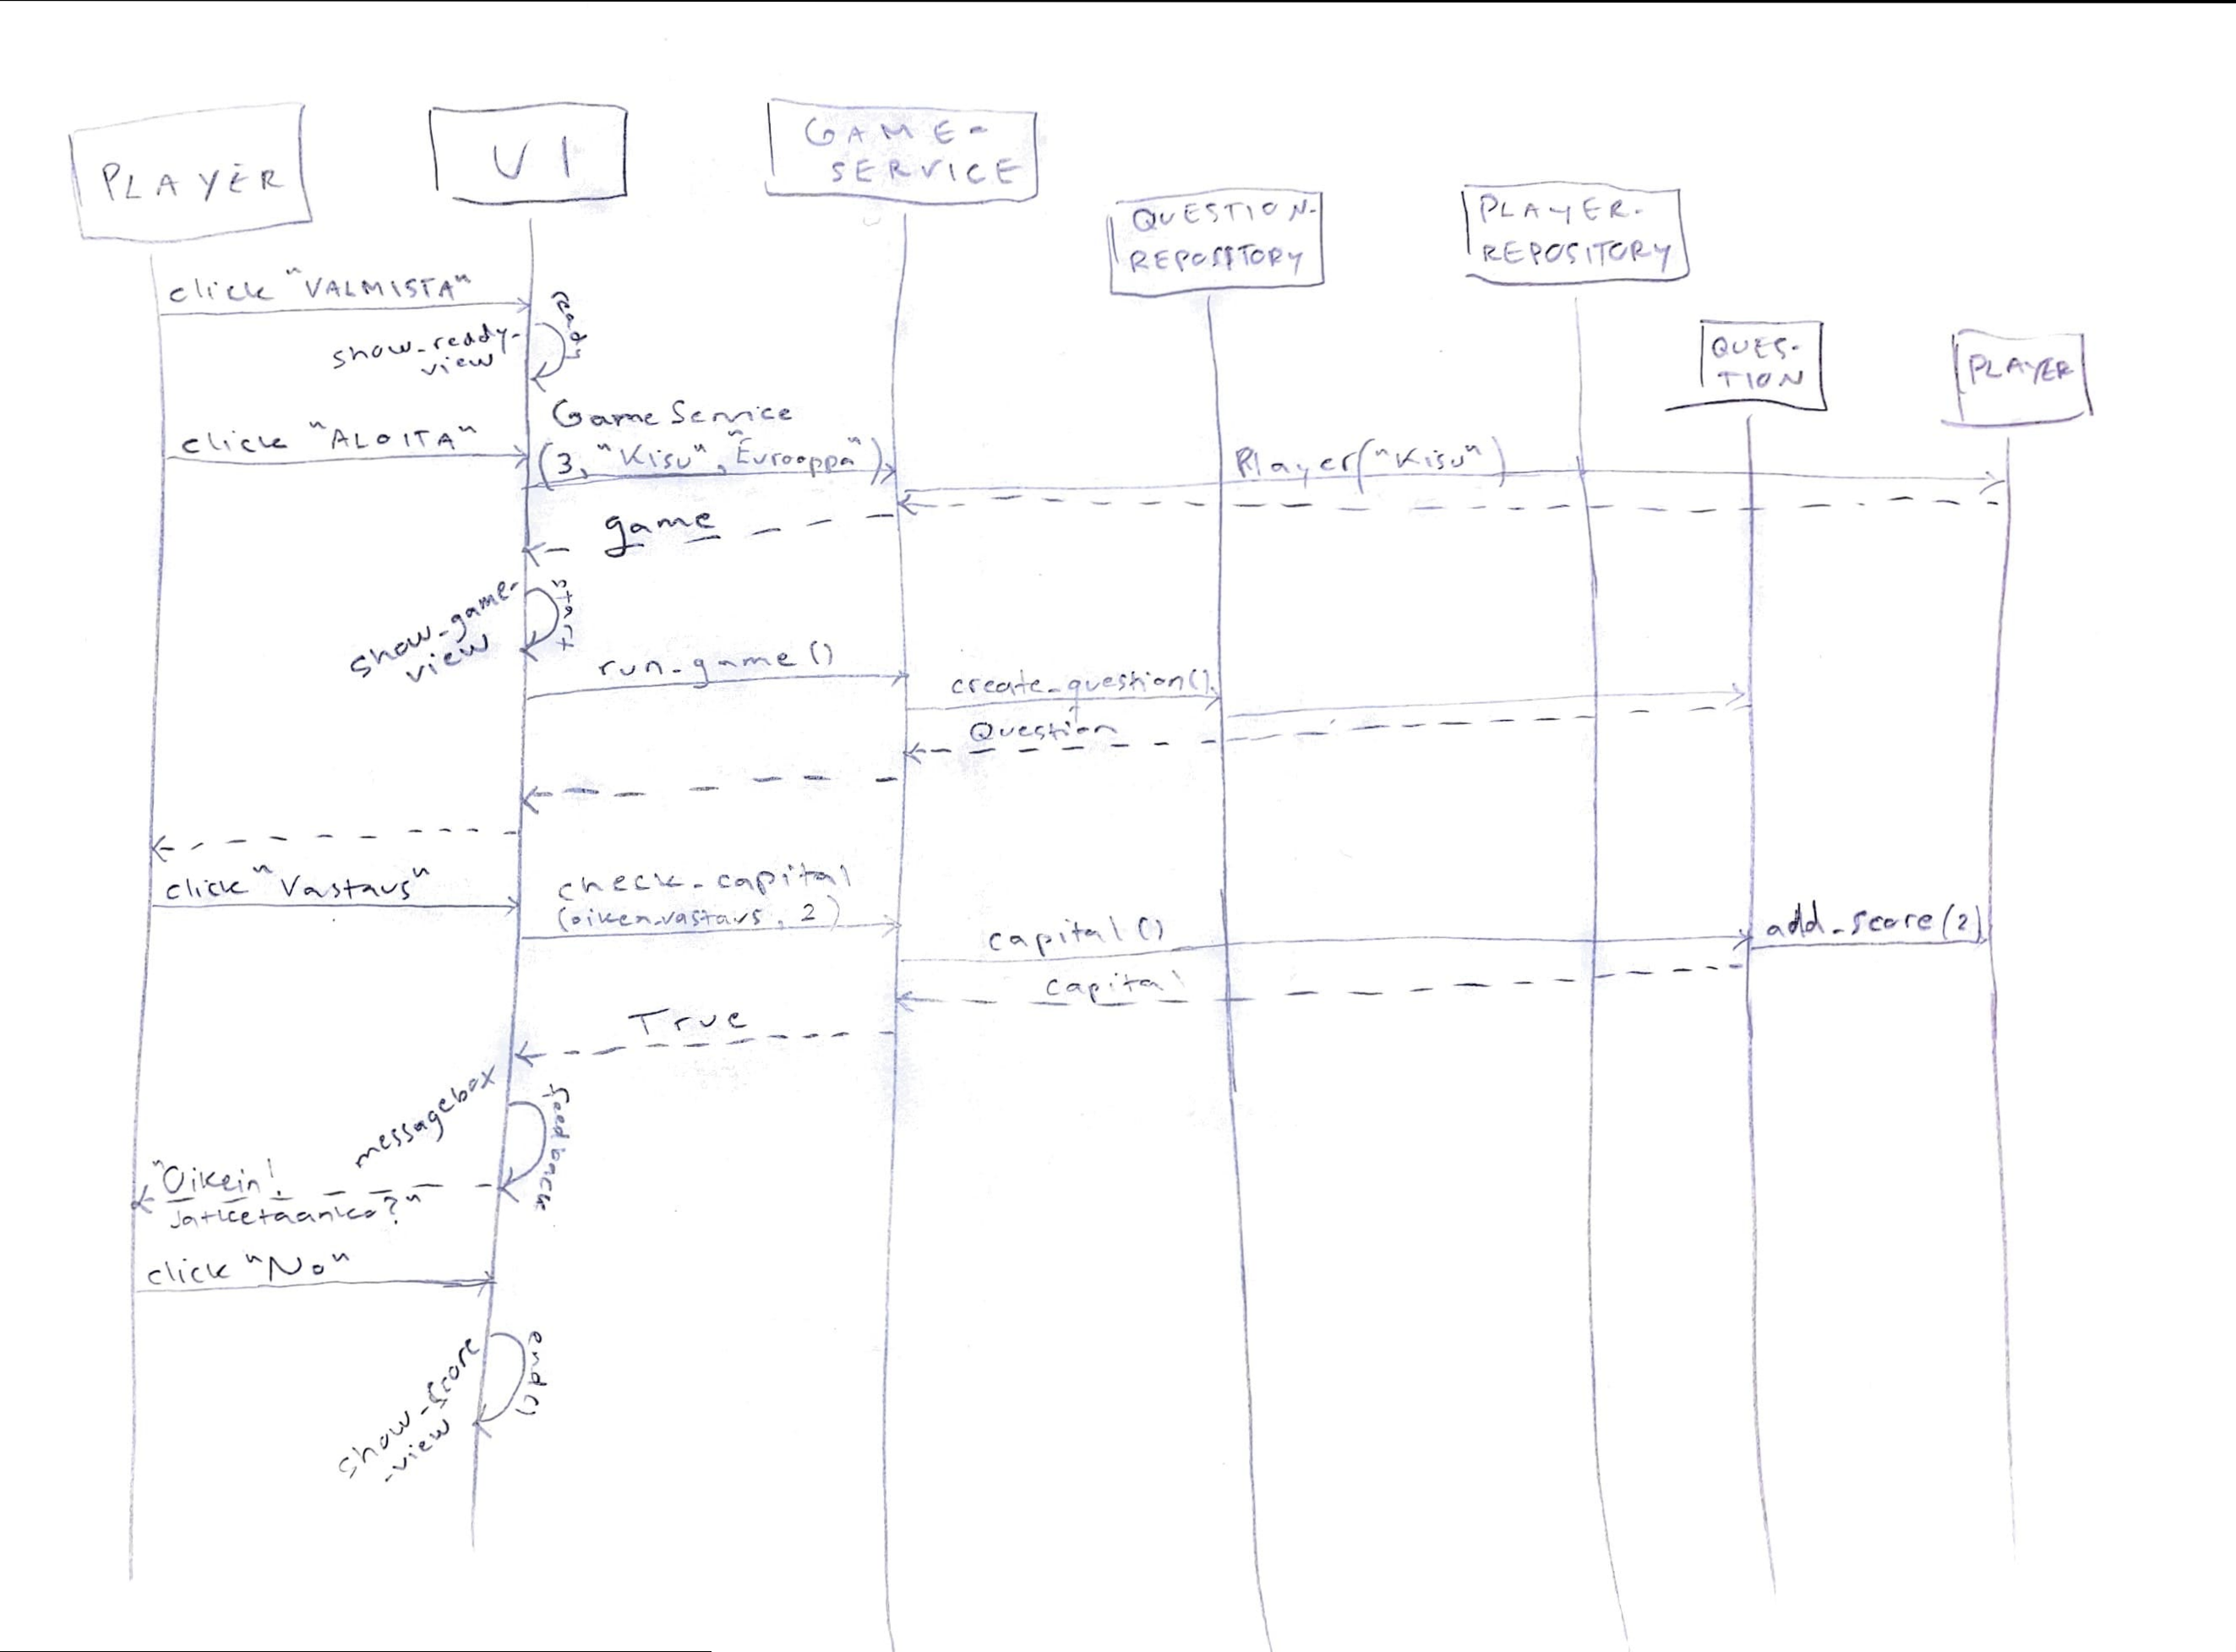 PLAYER
UI
GAME-
SERVICE
QUESTION-
REPOSITORY
PLAYER-
REPOSITORY
QUES-
TION
PLAYER
click "VALMISTA"
show_ready-
view
ready
click "ALOITA"
GameService
(3, "Kisu", "Eurooppa")
Player("Kisu")
game
show_game-
view
start
run_game()
create_question()
Question
click "Vastaus"
check_capital
(oikea_vastaus, 2)
capital()
add_score(2)
capital
True
messagebox
feedback
"Oikein!
Jatketaanko?"
click "No"
show_score
-view
end()